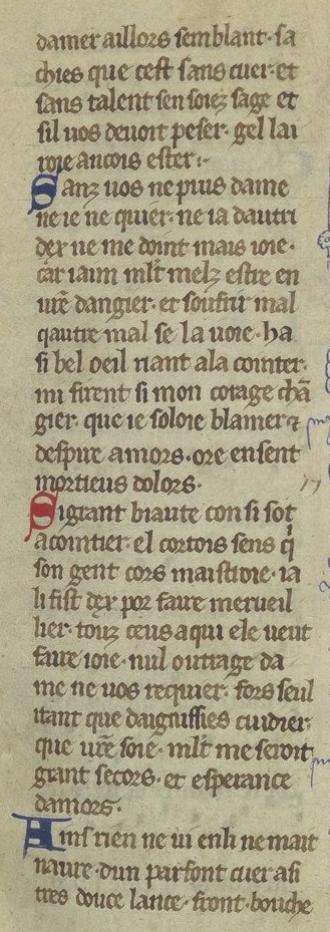 damer aillors semblant · sa
chies que cest sans cuer · et
sans talent sen soiez sage et
sil uos deuoit peser · gel lai
roie ancois ester :·
Sanz uos ne puis dame
ne ie ne quier · ne ia dautri
dex ne me doint mais ioie ·
car iaim mlt melz estre en
ure dangier · et soufrir mal
qautre mal se la uoie · ha
si bel oeil riant a la cointer ·
mi firent si mon corage chā
gier · que ie soloie blamer ⁊
despire amors · ore en sent
mortieus dolors ·
Si grant biaute con si sot
acointier · el cortois sens q̓
son gent cors maistroie · ia
li fist dex por faire merueil
lier · touz ceus a qui ele ueut
faire ioie · nul outrage da
me ne uos requier · fors seul
itant que daignissies cuidier
que ure soie · mlt me seroit
grant secors · et esperance
damors ·
Ains rien ne ui en li ne mait
naure · dun parfont cuer a si
tres douce lance · front · bouche